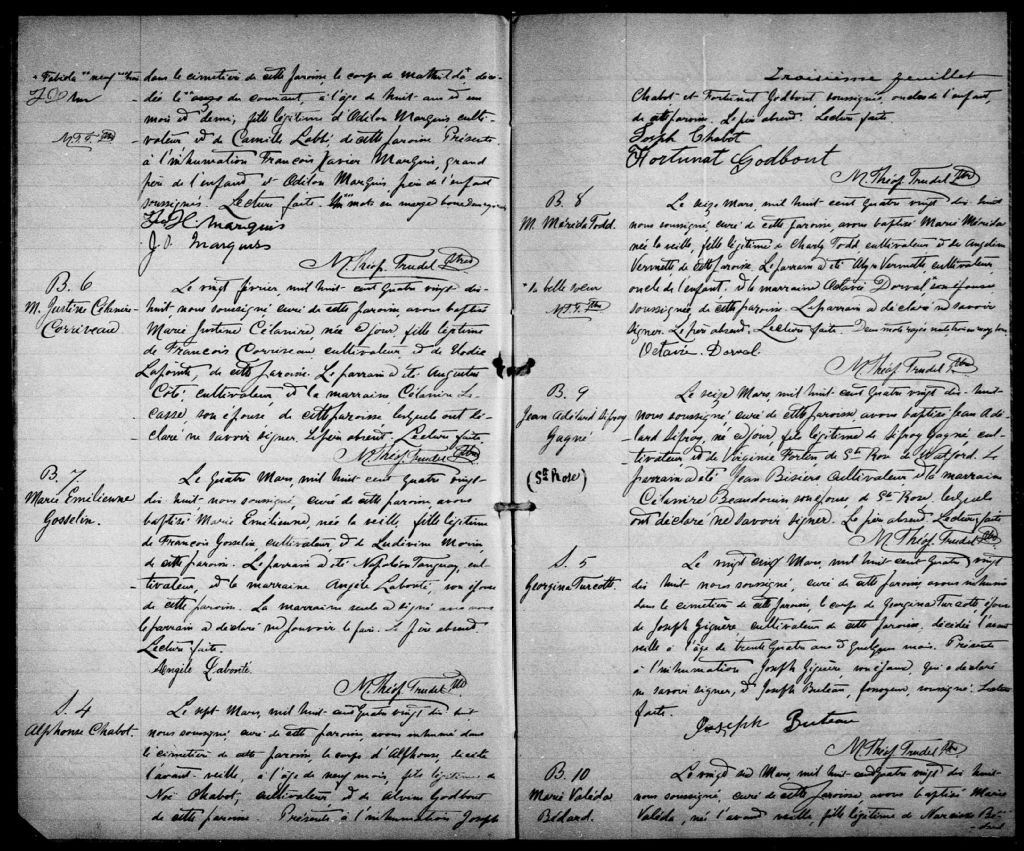 dans le cimetière de cette paroisse le corps de Mathilda décé-
dée le onze du courant, à l'âge de huit ans et un
mois et demi, fille légitime d'Odilon Marquis culti-
vateur et de Camille Labbé, de cette paroisse. Présents
à l'inhumation François Xavier Marquis, grand
père de l'enfant et Odilon Marquis père de l'enfant
soussignés. Lecture faite. mots en marge bons
F X Marquis
J. O. Marquis
M. Théop. Trudel Ptre
B. 6
M. Justine Célanire
Corriveau
Le vingt février, mil huit cent quatre vingt dix-
huit nous soussigné curé de cette paroisse, avons baptisé
Marie Justine Célanire, née ce jour, fille légitime
de François Corriveau, cultivateur, et de Elodie
Lapointe, de cette paroisse. Le parrain a été Augustin
Côté, cultivateur et la marraine Célanire Le-
casse, son épouse de cette paroisse lesquels ont dé-
claré ne savoir signer. Le père absent. Lecture faite.
M. Théop. Trudel Ptre
B. 7
Marie Emilienne
Gosselin.
Le quatre Mars, mil huit cent quatre vingt
dix huit nous soussigné, curé de cette paroisse avons
baptisé Marie Emilienne, née la veille, fille légitime
de François Gosselin cultivateur, et de Ludivine Morin,
de cette paroisse. Le parrain a été Napoléon Tanguay, cul-
tivateur, et la marraine Angèle Labonté, son épouse
de cette paroisse. La marraine seule a signé avec nous
le parrain a déclaré ne pouvoir le faire. Le père absent.
Lecture faite.
Angèle Labonté.
M. Théop. Trudel Ptre
S. 4
Alphonse Chabot.
Le sept Mars, mil huit cent quatre vingt dix huit
nous soussigné, curé de cette paroisse, avons inhumé dans
le cimetière de cette paroisse, le corps d'Alphonse, décédé
l'avant-veille, à l'âge de neuf mois, fils légitime de
Noé Chabot, cultivateur, et de Alvine Godbout
de cette paroisse. Présents à l'inhumation Joseph
Troisième feuillet
Chabot et Fortunat Godbout soussignés, oncles de l'enfant,
de cette paroisse. Le père absent. Lecture faite.
Joseph Chabot
Fortunat Godbout
M. Théop. Trudel Ptre
B. 8
M. Mérida Todd.
Le seize Mars, mil huit cent quatre vingt dix huit
nous soussigné, curé de cette paroisse, avons baptisé Marie Mérida
née la veille, fille légitime de Charly Todd cultivateur et de Angelina
Vermette de cette paroisse. Le parrain a été Vermette, cultivateur
oncle de l'enfant. et la marraine Octavie Dorval son épouse
soussignée, de cette paroisse. Le parrain a déclaré ne savoir
signer. Le père absent. Lecture faite. Deux mots rayés nuls
la belle soeur
M.T.T. Ptre
Octavie Dorval.
M. Théop. Trudel Ptre
B. 9
Jean Adélard Sifroy
Gagné
(Ste Rose)
Le seize Mars, mil huit cent quatre vingt dix-huit
nous soussigné, curé de cette paroisse avons baptisé Jean Adé-
lard Sifroy, né ce jour, fils légitime de Sifroy Gagné cul-
tivateur et de Virginie Fortier de Ste Rose de Watford. Le
parrain a été Jean Bisière cultivateur et la marraine
Célanire Beaudouin son épouse de Ste Rose, lesquels
ont déclaré ne savoir signer. Le père absent. Lecture faite
M. Théop. Trudel Ptre
S. 5
Georgina Turcotte
Le vingt cinq Mars, mil huit cent quatre vingt
dix huit nous soussigné, curé de cette paroisse, avons inhumé
dans le cimetière de cette paroisse, le corps de Georgina Turcotte, épouse
de Joseph Giguère, cultivateur de cette paroisse, décédée l'avant
veille à l'âge de trente quatre ans et quelques mois. Présents
à l'inhumation Joseph Giguère son époux, qui a déclaré
ne savoir signer, et Joseph Buteau, fossoyeur, soussigné. Lecture
faite.
Joseph Buteau
M. Théop. Trudel Ptre
B. 10
Marie Valéda
Bédard.
Le vingt six Mars, mil huit cent quatre vingt dix huit
nous soussigné, curé de cette paroisse, avons baptisé Marie
Valéda, née l'avant veille, fille légitime de Narcisse Bé-
dard